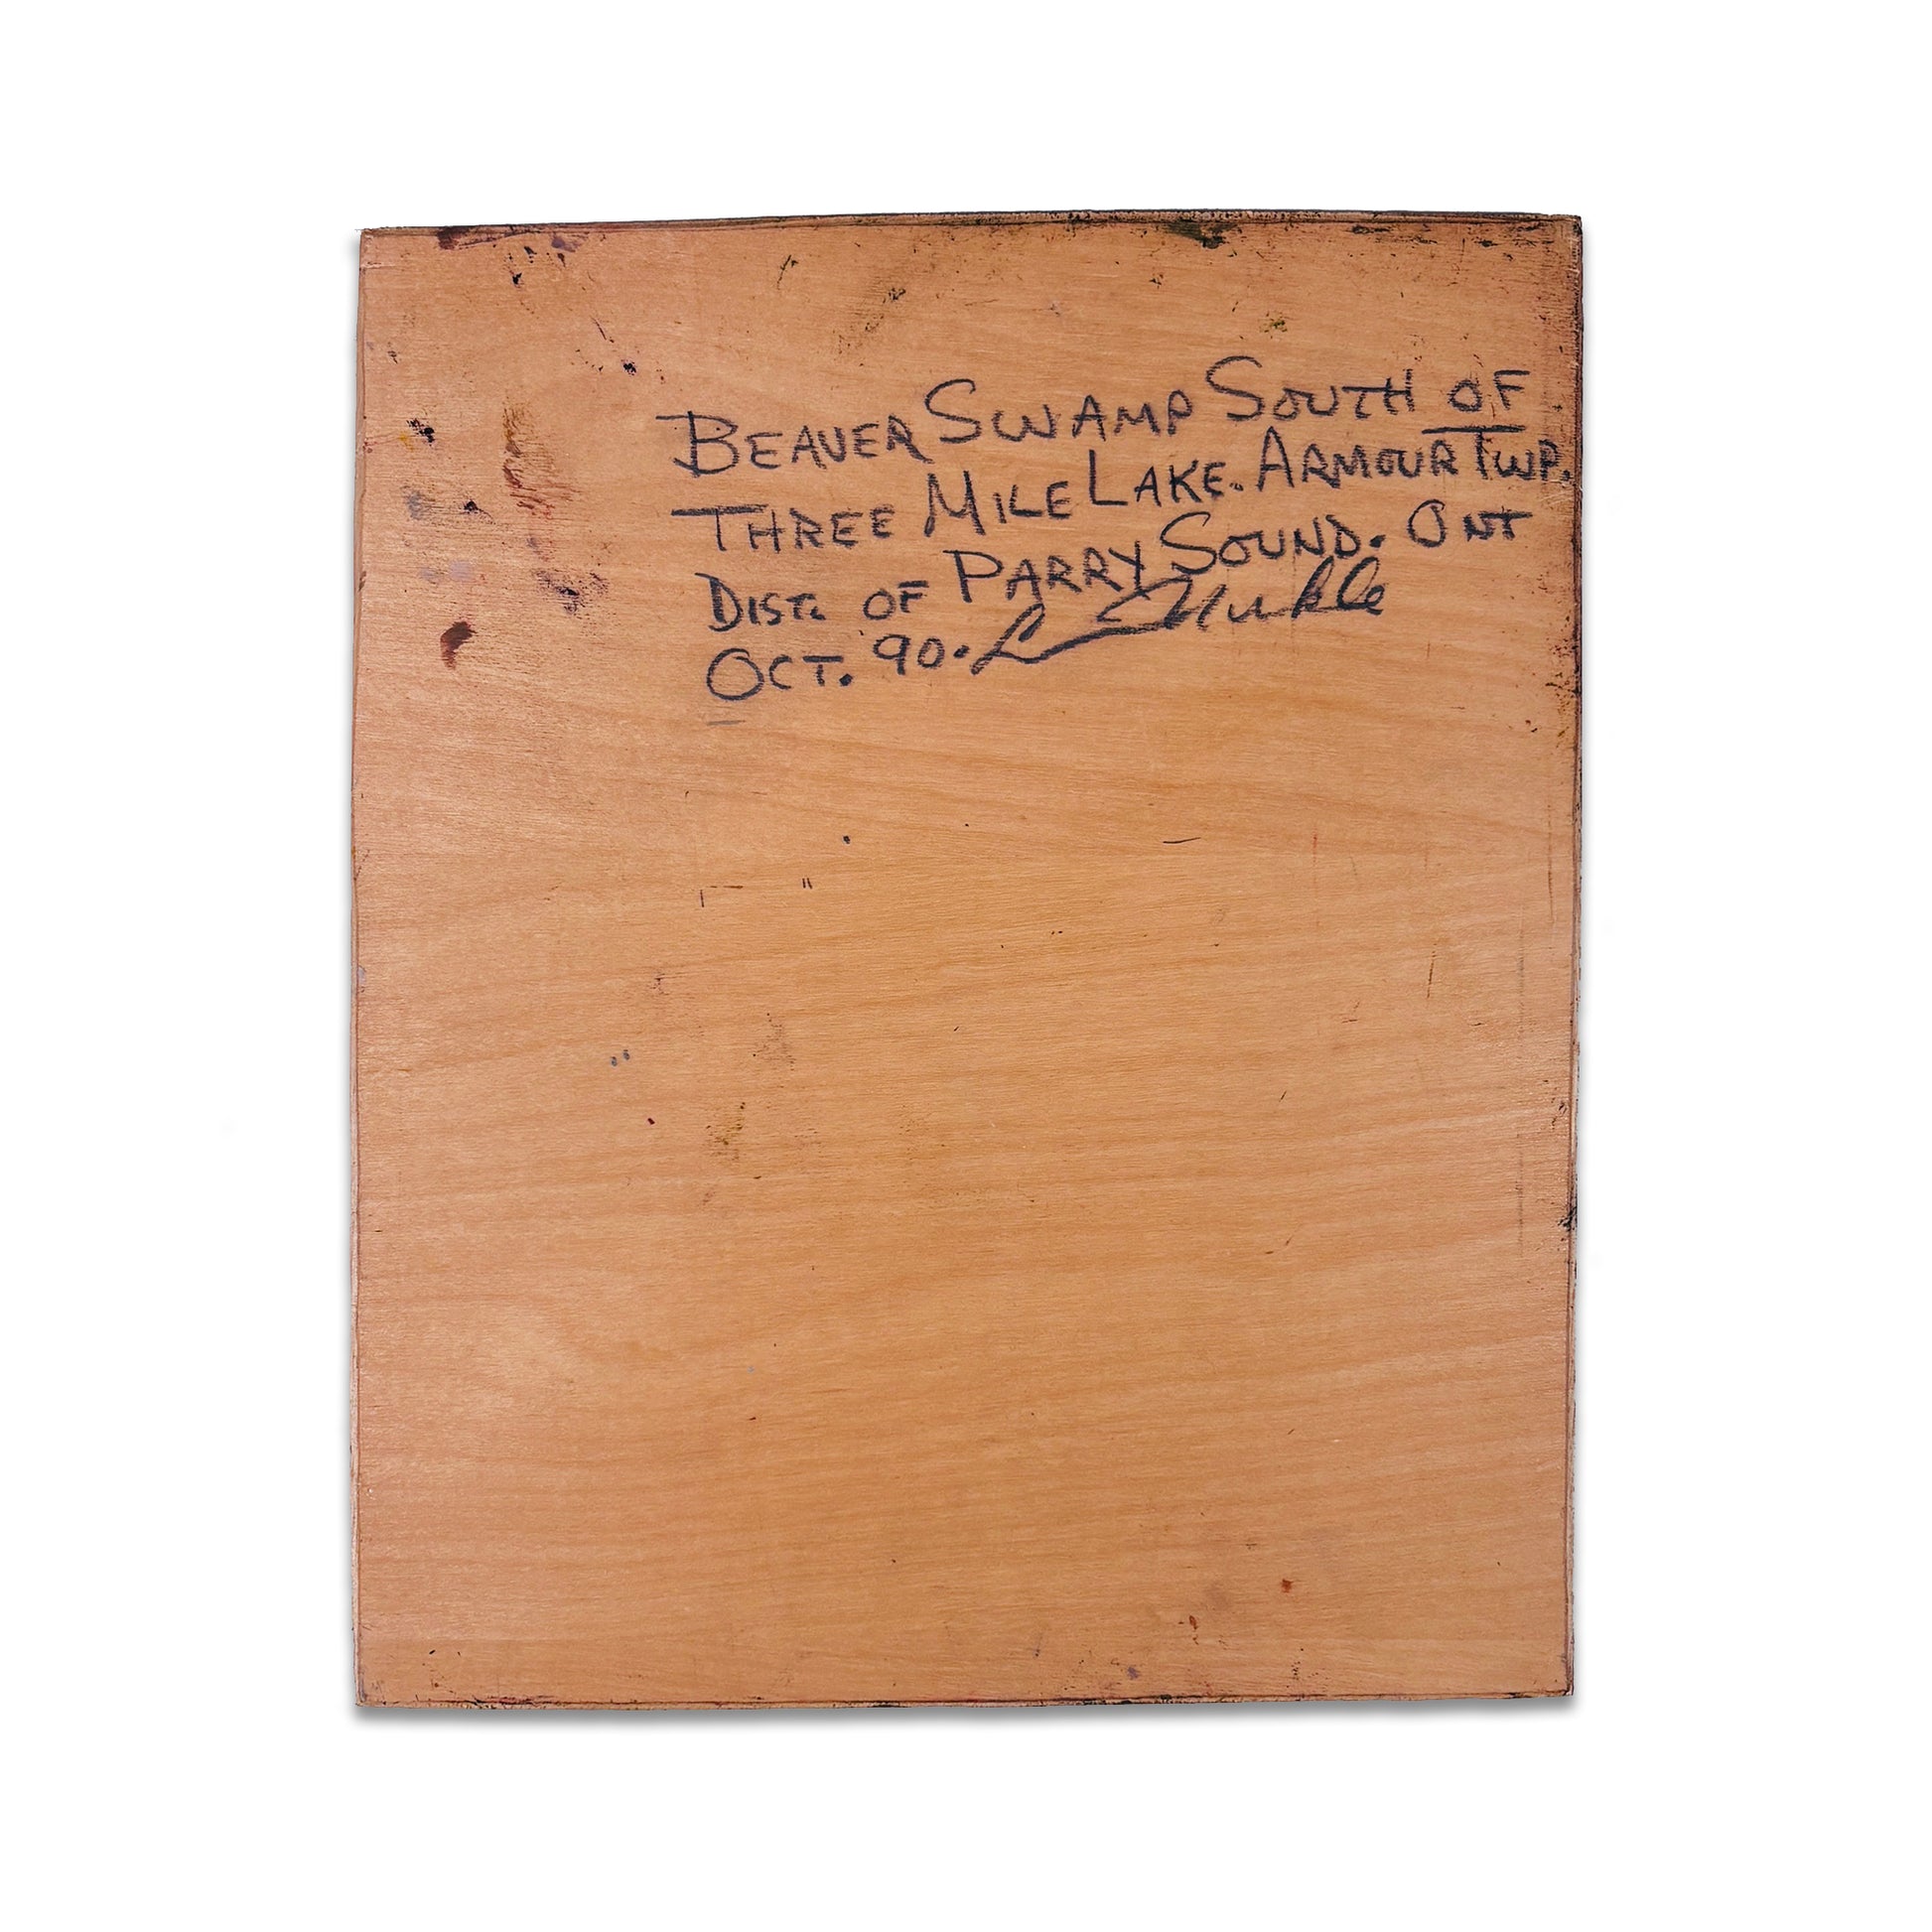 BEAVER SWAMP SOUTH OF
THREE MILE LAKE. ARMOUR TWP.
DIST. OF PARRY SOUND. ONT
OCT. '90.